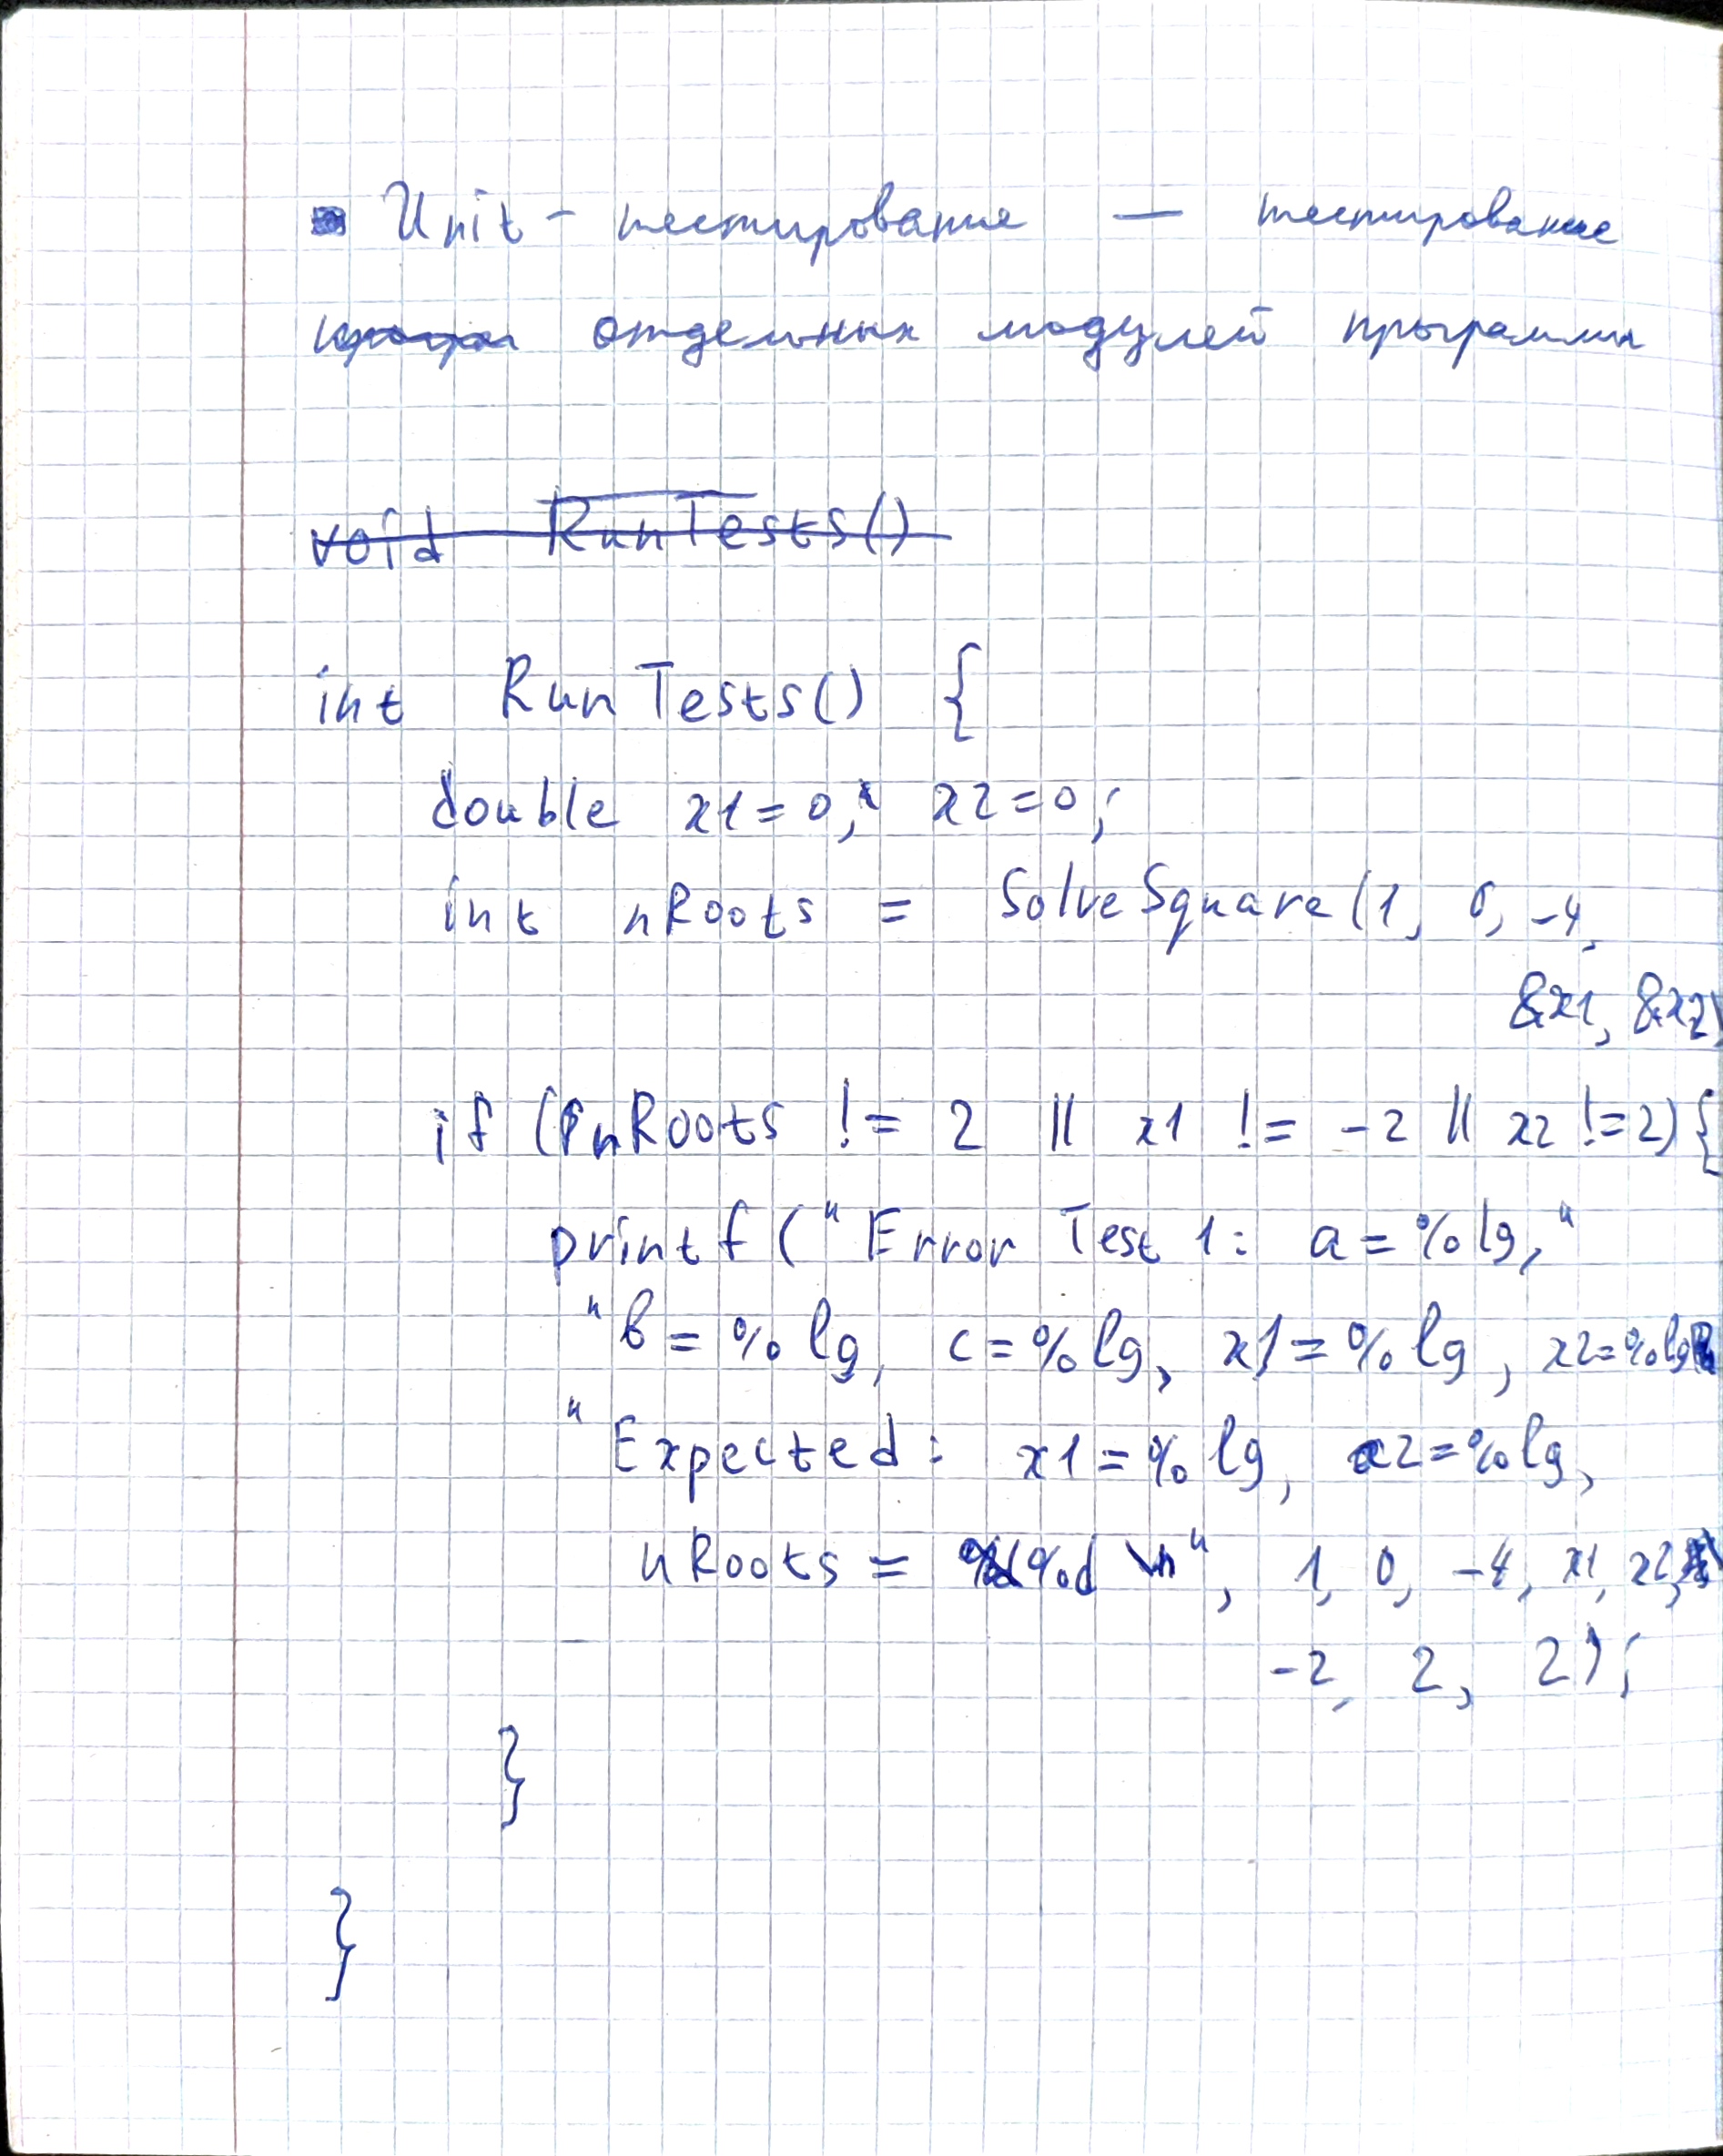 Unit - тестирование — тестирование
отдельных модулей программы
void RunTests()
int RunTests() {
double x1=0, x2=0;
int nRoots = SolveSquare(1, 0, -4,
&x1, &x2)
if (nRoots != 2 || x1 != -2 || x2 !=2) {
printf ("Error Test 1: a=%lg,"
"b=%lg, c=%lg, x1=%lg, x2=%lg
"Expected: x1=%lg, x2=%lg,
nRoots = %d \n", 1, 0, -4, x1, x2,
-2, 2, 2);
}
}